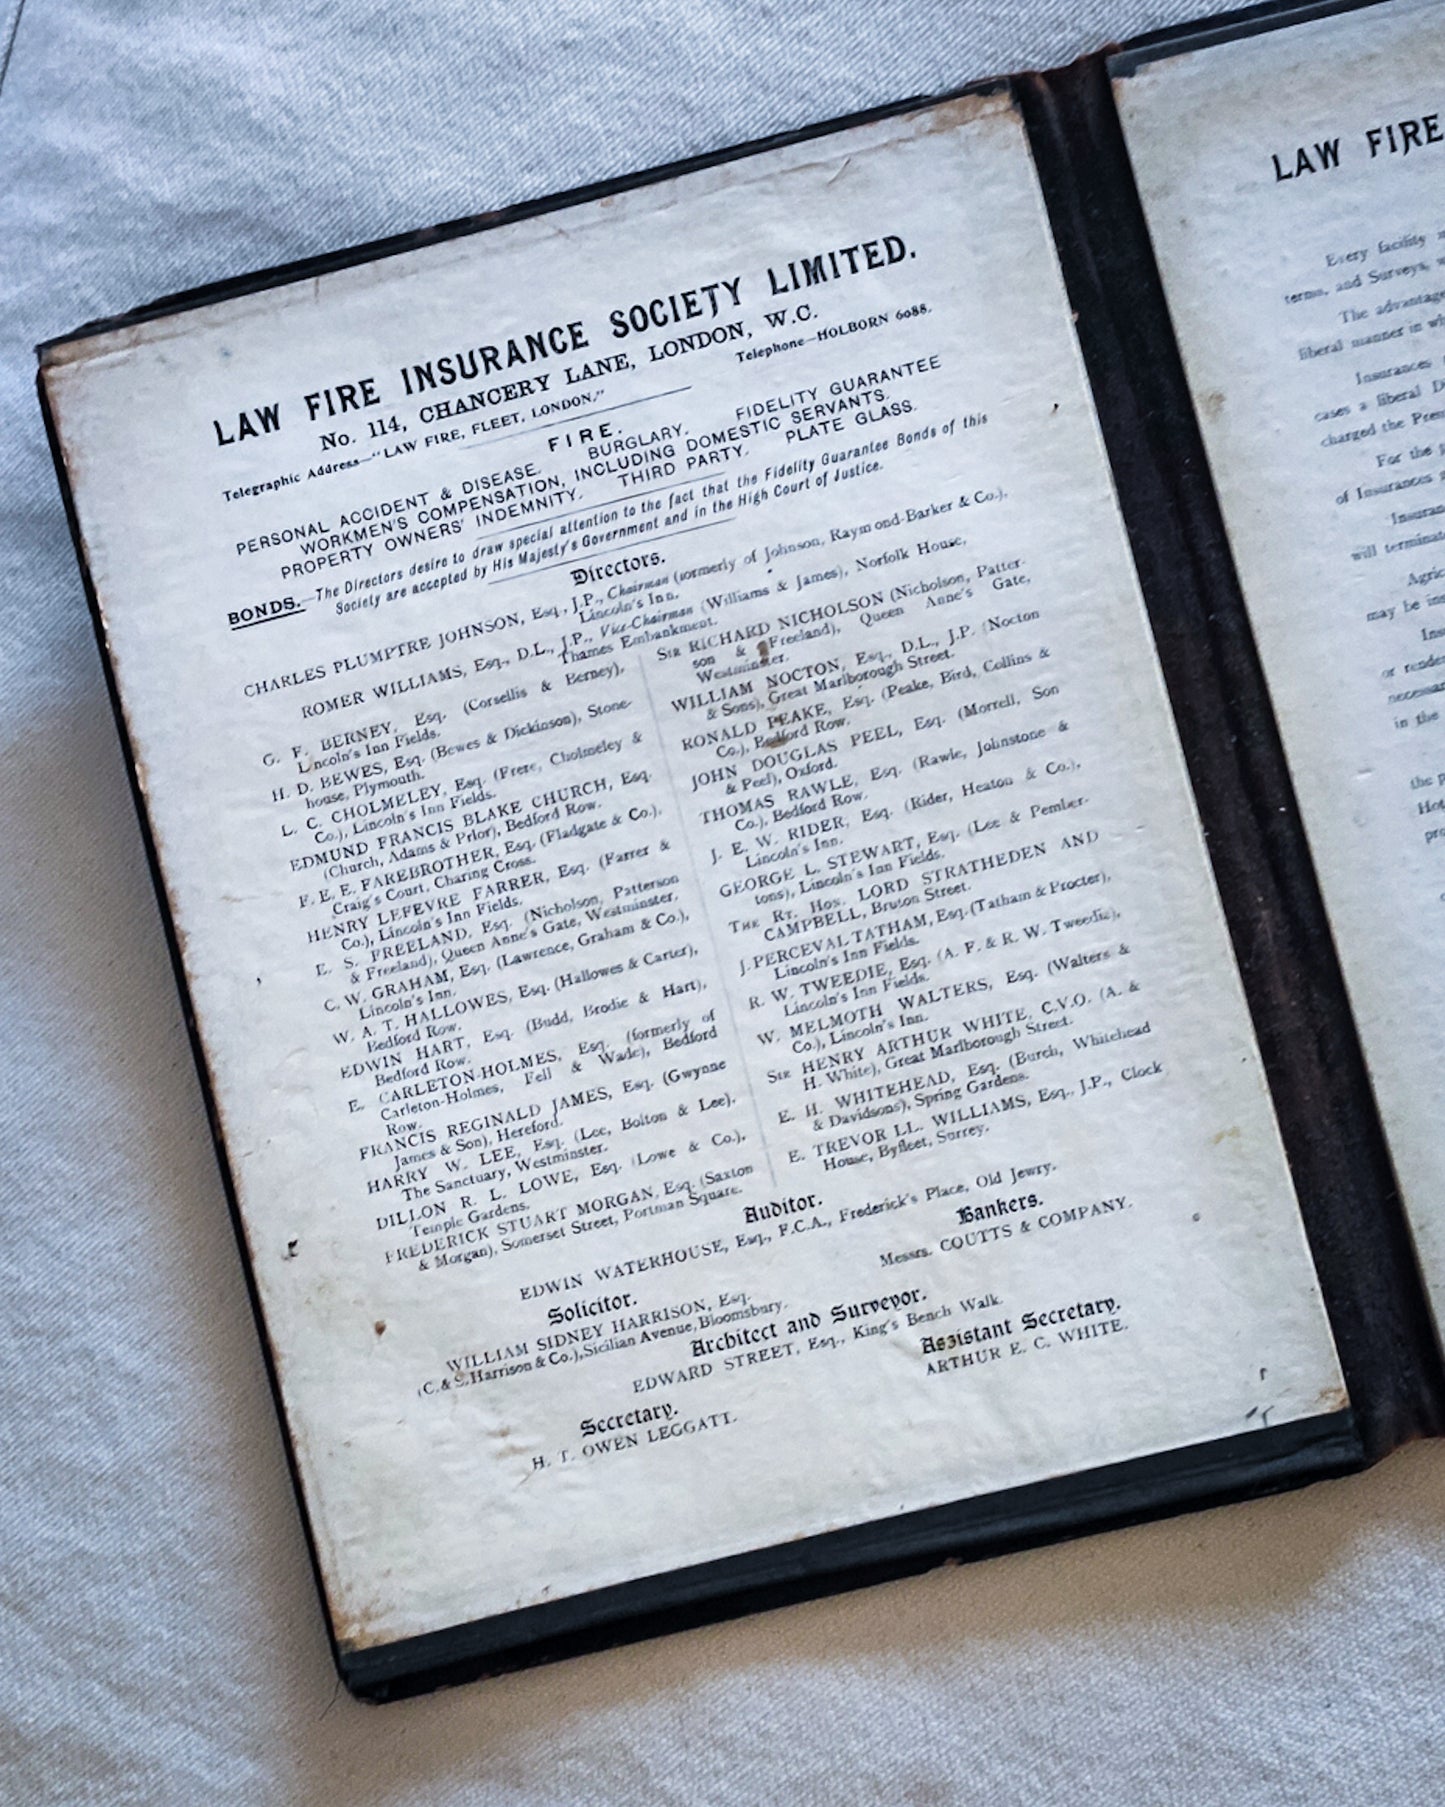 LAW FIRE INSURANCE SOCIETY LIMITED.
No. 114, CHANCERY LANE, LONDON, W.C.
Telegraphic Address—"LAW FIRE, FLEET, LONDON."
Telephone—HOLBORN 6088.
FIRE.
PERSONAL ACCIDENT & DISEASE. BURGLARY. FIDELITY GUARANTEE
WORKMEN'S COMPENSATION, INCLUDING DOMESTIC SERVANTS.
PROPERTY OWNERS' INDEMNITY. THIRD PARTY. PLATE GLASS.
BONDS.—The Directors desire to draw special attention to the fact that the Fidelity Guarantee Bonds of this
Society are accepted by His Majesty's Government and in the High Court of Justice.
Directors.
CHARLES PLUMPTRE JOHNSON, Esq., J.P., Chairman (formerly of Johnson, Raymond-Barker & Co.),
Lincoln's Inn.
ROMER WILLIAMS, Esq., D.L., J.P., Vice-Chairman (Williams & James), Norfolk House,
Thames Embankment.
G. F. BERNEY, Esq. (Corsellis & Berney),
Lincoln's Inn Fields.
H. D. BEWES, Esq. (Bewes & Dickinson), Stone-
house, Plymouth.
L. C. CHOLMELEY, Esq. (Frere, Cholmeley &
Co.), Lincoln's Inn Fields.
EDMUND FRANCIS BLAKE CHURCH, Esq.
(Church, Adams & Prior), Bedford Row.
F. E. E. FAREBROTHER, Esq. (Fladgate & Co.),
Craig's Court, Charing Cross.
HENRY LEFEVRE FARRER, Esq. (Farrer &
Co.), Lincoln's Inn Fields.
E. S. FREELAND, Esq. (Nicholson, Patterson
& Freeland), Queen Anne's Gate, Westminster.
C. W. GRAHAM, Esq. (Lawrence, Graham & Co.),
Lincoln's Inn.
W. A. T. HALLOWES, Esq. (Hallowes & Carter),
Bedford Row.
EDWIN HART, Esq. (Budd, Brodie & Hart),
Bedford Row.
E. CARLETON-HOLMES, Esq. (formerly of
Carleton-Holmes, Fell & Wade), Bedford
Row.
FRANCIS REGINALD JAMES, Esq. (Gwynne
James & Son), Hereford.
HARRY W. LEE, Esq. (Lee, Bolton & Lee),
The Sanctuary, Westminster.
DILLON R. L. LOWE, Esq. (Lowe & Co.),
Temple Gardens.
FREDERICK STUART MORGAN, Esq. (Saxton
& Morgan), Somerset Street, Portman Square.
Sir RICHARD NICHOLSON (Nicholson, Patter-
son & Freeland), Queen Anne's Gate,
Westminster.
WILLIAM NOCTON, Esq., D.L., J.P. (Nocton
& Sons), Great Marlborough Street.
RONALD PEAKE, Esq. (Peake, Bird, Collins &
Co.), Bedford Row.
JOHN DOUGLAS PEEL, Esq. (Morrell, Son
& Peel), Oxford.
THOMAS RAWLE, Esq. (Rawle, Johnstone &
Co.), Bedford Row.
J. E. W. RIDER, Esq. (Rider, Heaton & Co.),
Lincoln's Inn.
GEORGE L. STEWART, Esq. (Lee & Pember-
tons), Lincoln's Inn Fields.
The Rt. Hon. LORD STRATHEDEN AND
CAMPBELL, Bruton Street.
J. PERCEVAL TATHAM, Esq. (Tatham & Procter),
Lincoln's Inn Fields.
R. W. TWEEDIE, Esq. (A. F. & R. W. Tweedie),
Lincoln's Inn Fields.
W. MELMOTH WALTERS, Esq. (Walters &
Co.), Lincoln's Inn.
Sir HENRY ARTHUR WHITE, C.V.O. (A. &
H. White), Great Marlborough Street.
E. H. WHITEHEAD, Esq. (Burch, Whitehead
& Davidsons), Spring Gardens.
E. TREVOR LL. WILLIAMS, Esq., J.P., Clock
House, Byfleet, Surrey.
Auditor.
EDWIN WATERHOUSE, Esq., F.C.A., Frederick's Place, Old Jewry.
Solicitor.
WILLIAM SIDNEY HARRISON, Esq.
(C. & S. Harrison & Co.), Sicilian Avenue, Bloomsbury.
Bankers.
Messrs. COUTTS & COMPANY.
Architect and Surveyor.
EDWARD STREET, Esq., King's Bench Walk.
Secretary.
H. T. OWEN LEGGATT.
Assistant Secretary.
ARTHUR E. C. WHITE.
LAW FIRE
Every facility
terms, and Surveys,
The advantage
liberal manner in
Insurances
cases a liberal
charged the
For the
of Insurances
will terminate
may be
or
necessary
in the
the